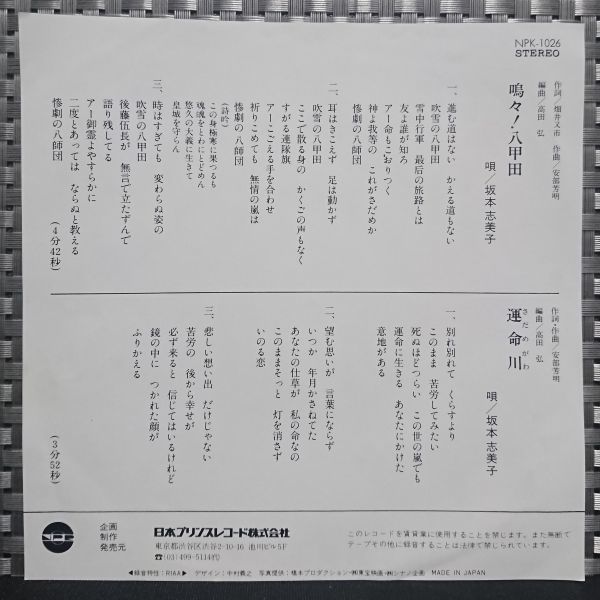 NPK-1026
STEREO
嗚々!八甲田
作詞/畑井又市 作曲/安部芳明
編曲/高田 弘
唄/坂本志美子
一、進む道はない かえる道もない
吹雪の八甲田
雪中行軍 最后の旅路とは
友よ誰が知ろ
アー命もこおりつく
神よ我等の これがさだめか
惨劇の八師団
二、耳はきこえず 足は動かず
吹雪の八甲田
ここで散る身の かくごの声もなく
すがる連隊旗
アーこごえる手を合わせ
祈りこめても 無情の嵐は
惨劇の八師団
(詩吟)
この身極寒に果つるも
魂魄をとわにとどめん
悠久の大義に生きて
皇城を守らん
三、時はすぎても 変わらぬ姿の
吹雪の八甲田
後藤伍長が 無言で立たずんで
語り残してる
アー御霊よやすらかに
二度とあっては ならぬと教える
惨劇の八師団
(4分42秒)
運命川
さだめがわ
作詞・作曲/安部芳明
編曲/高田 弘
唄/坂本志美子
一、別れ別れて くらすより
このまま 苦労してみたい
死ぬほどつらい この世の嵐でも
運命に生きる あなたにかけた
意地がある
二、望む思いが 言葉にならず
いつか 年月かさねてた
あなたの仕草が 私の命なの
このままそっと 灯を消さず
いのる恋
三、悲しい想い出 だけじゃない
苦労の 後から幸せが
必ず来ると 信じてはいるけれど
鏡の中に つかれた顔が
ふりかえる
(3分52秒)
NPR
企画
制作
発売元
日本プリンスレコード株式会社
東京都渋谷区渋谷2-10-16 池川ビル5F
☎(03)499-5114(代)
このレコードを賃貸業に使用することを禁じます。また無断で
テープその他に録音することは法律で禁じられています。
◀録音特性:RIAA▶ デザイン:中村義之 写真提供:橋本プロダクション・㈱東宝映画・㈱シナノ企画 MADE IN JAPAN